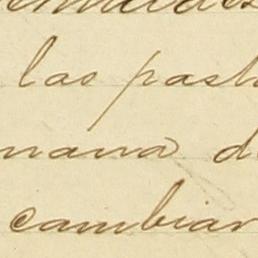 las past
mana d
cambiar